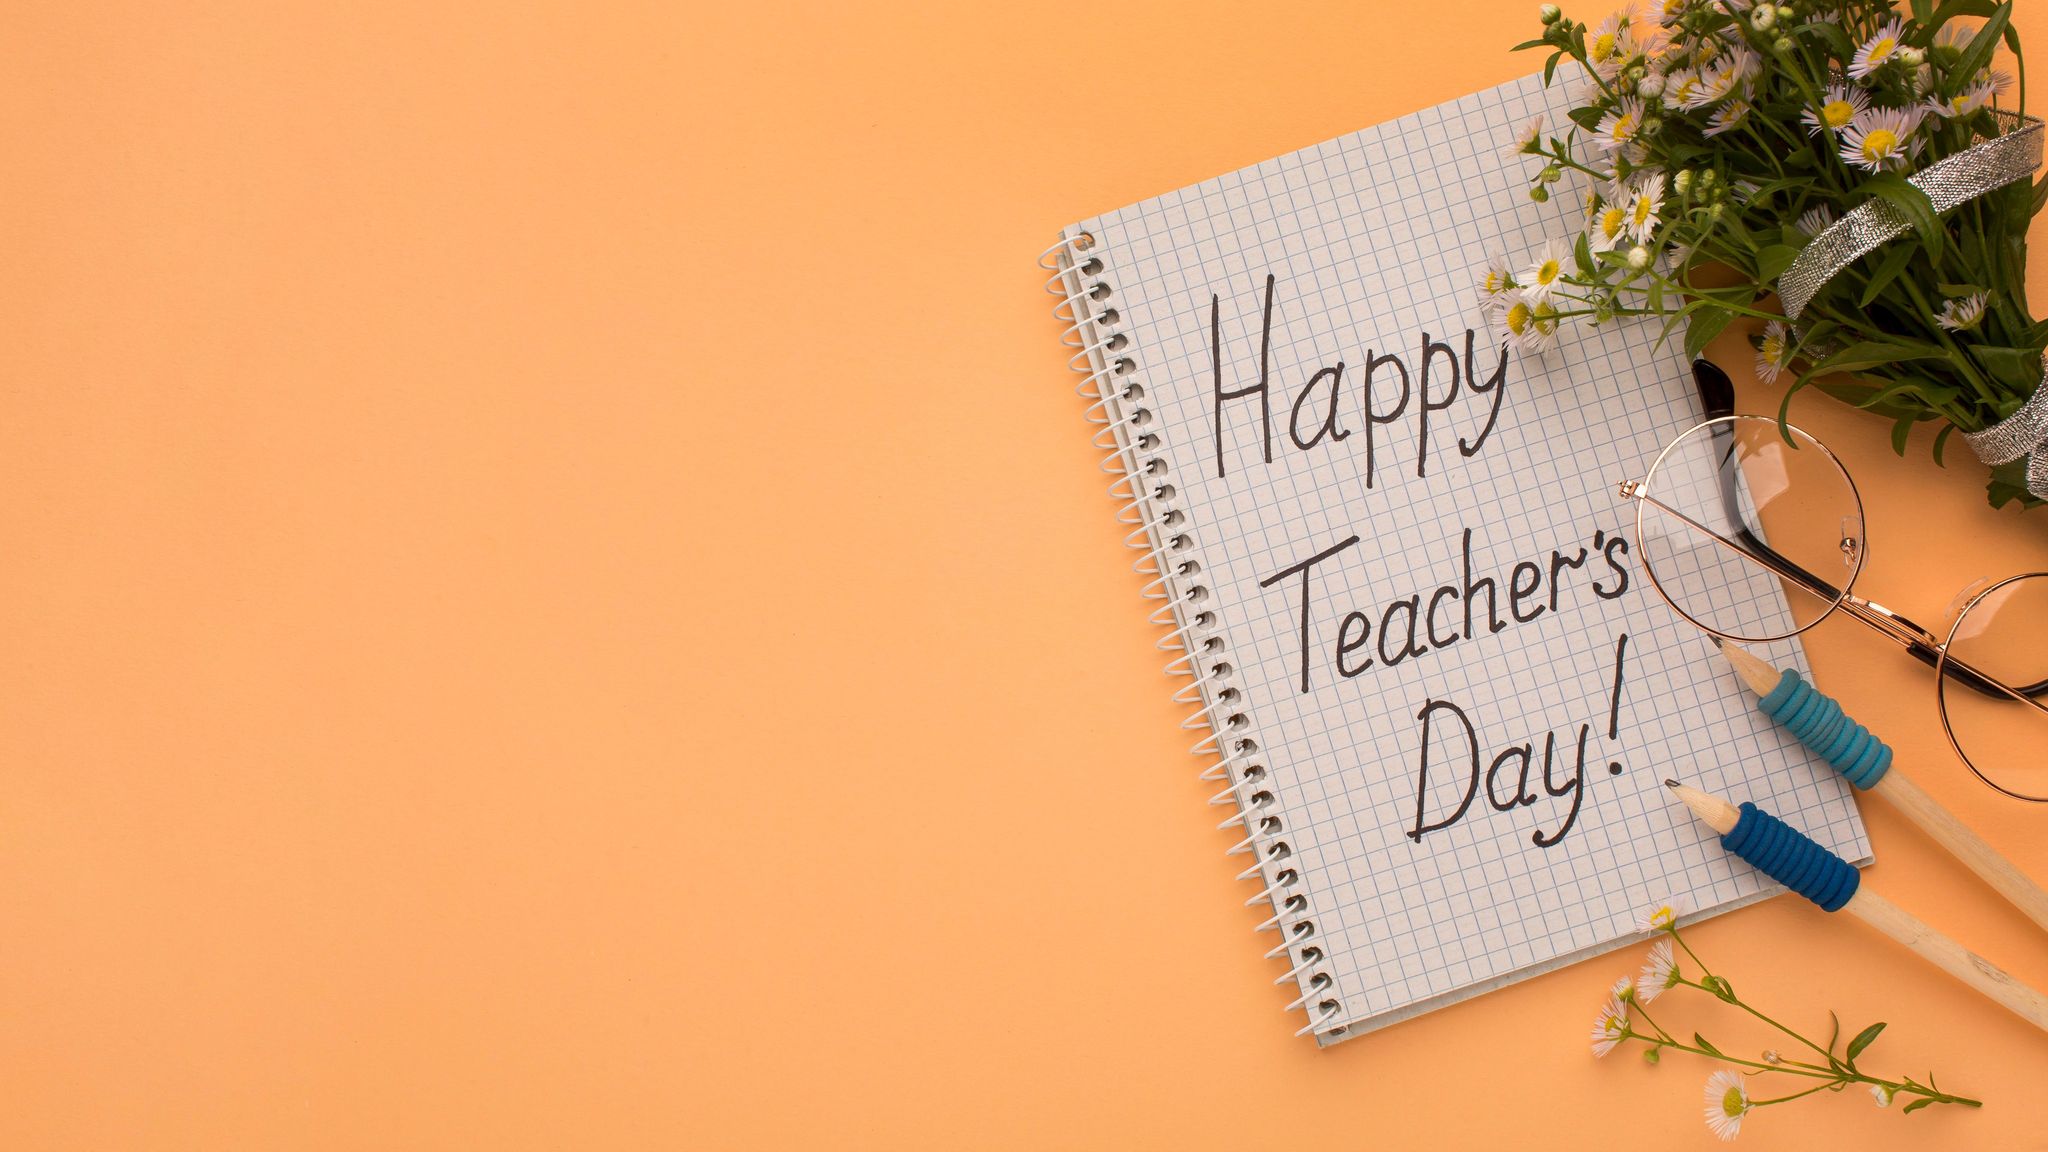 Happy
Teacher's
Day!